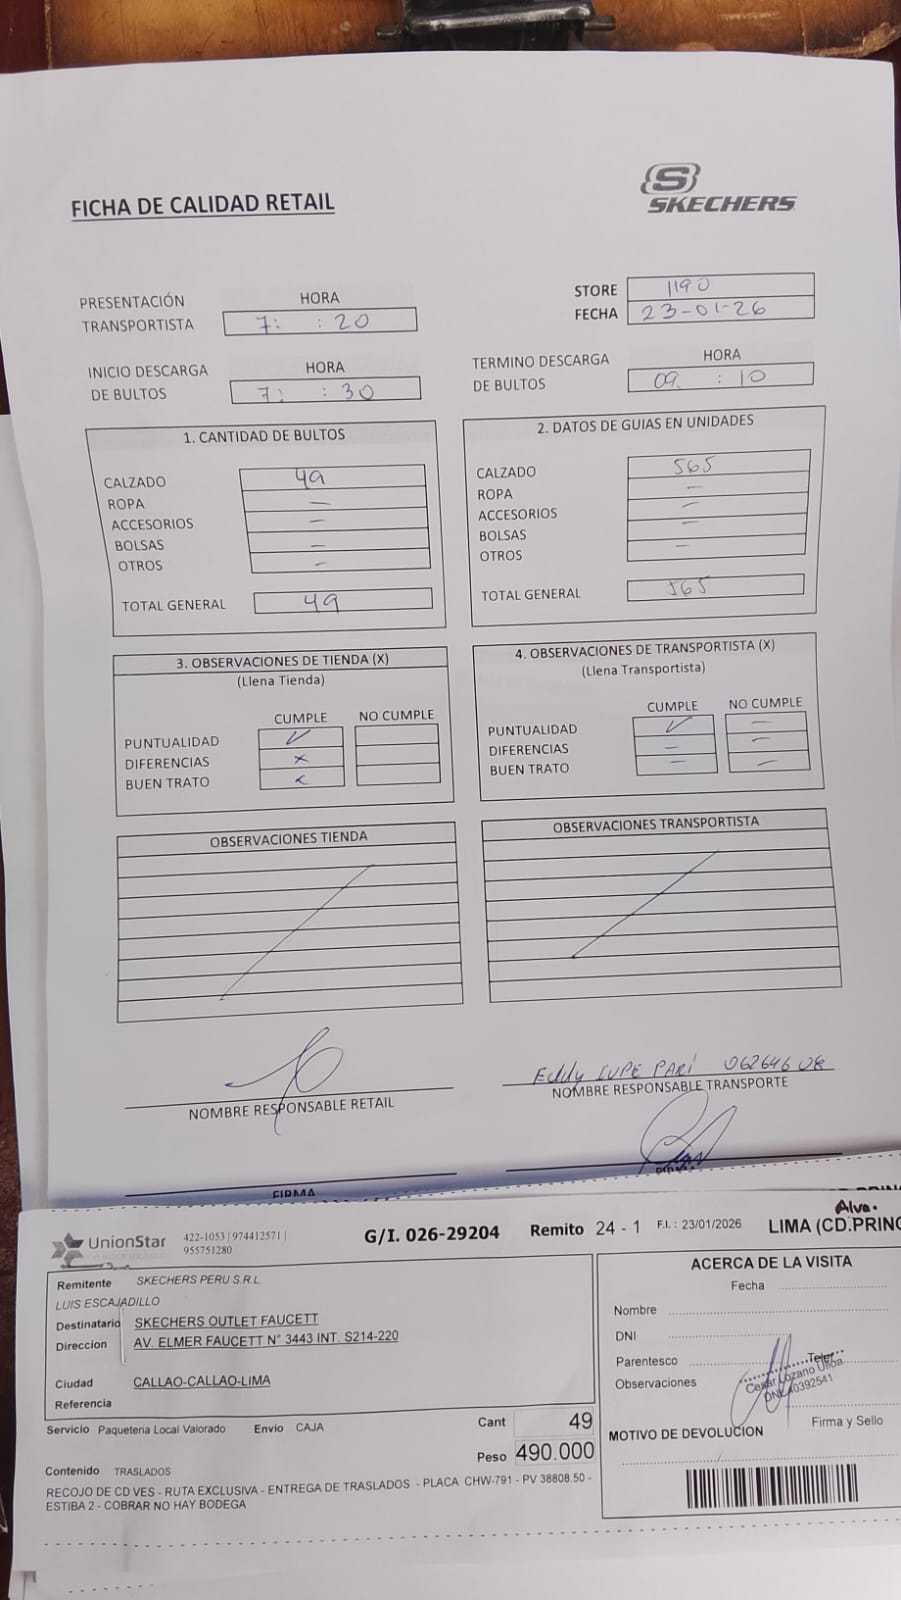 FICHA DE CALIDAD RETAIL
S
SKECHERS
PRESENTACIÓN TRANSPORTISTA
HORA
7: : 20
STORE 1190
FECHA 23-01-26
INICIO DESCARGA DE BULTOS
HORA
7: : 30
TERMINO DESCARGA DE BULTOS
HORA
09. : 10
1. CANTIDAD DE BULTOS
CALZADO 49
ROPA —
ACCESORIOS —
BOLSAS —
OTROS —
TOTAL GENERAL 49
2. DATOS DE GUIAS EN UNIDADES
CALZADO 565
ROPA —
ACCESORIOS —
BOLSAS —
OTROS —
TOTAL GENERAL 565
3. OBSERVACIONES DE TIENDA (X)
(Llena Tienda)
CUMPLE NO CUMPLE
PUNTUALIDAD ✓
DIFERENCIAS x
BUEN TRATO x
4. OBSERVACIONES DE TRANSPORTISTA (X)
(Llena Transportista)
CUMPLE NO CUMPLE
PUNTUALIDAD ✓ —
DIFERENCIAS — —
BUEN TRATO — —
OBSERVACIONES TIENDA
OBSERVACIONES TRANSPORTISTA
NOMBRE RESPONSABLE RETAIL
Eddy LUPE PARI 06264608
NOMBRE RESPONSABLE TRANSPORTE
FIRMA
UnionStar
422-1053 | 974412571 |
955751280
G/I. 026-29204
Remito 24 - 1
F.I. : 23/01/2026
Alva.
LIMA (CD.PRINC
Remitente SKECHERS PERU S.R.L
LUIS ESCAJADILLO
Destinatario SKECHERS OUTLET FAUCETT
Direccion AV. ELMER FAUCETT N° 3443 INT. S214-220
Ciudad CALLAO-CALLAO-LIMA
Referencia
Servicio Paqueteria Local Valorado Envio CAJA
Cant 49
Peso 490.000
Contenido TRASLADOS
RECOJO DE CD VES - RUTA EXCLUSIVA - ENTREGA DE TRASLADOS - PLACA CHW-791 - PV 38808.50 -
ESTIBA 2 - COBRAR NO HAY BODEGA
ACERCA DE LA VISITA
Fecha
Nombre
DNI
Parentesco
Observaciones
Cesar Lozano Ulloa
DNI 40392541
Firma y Sello
MOTIVO DE DEVOLUCION